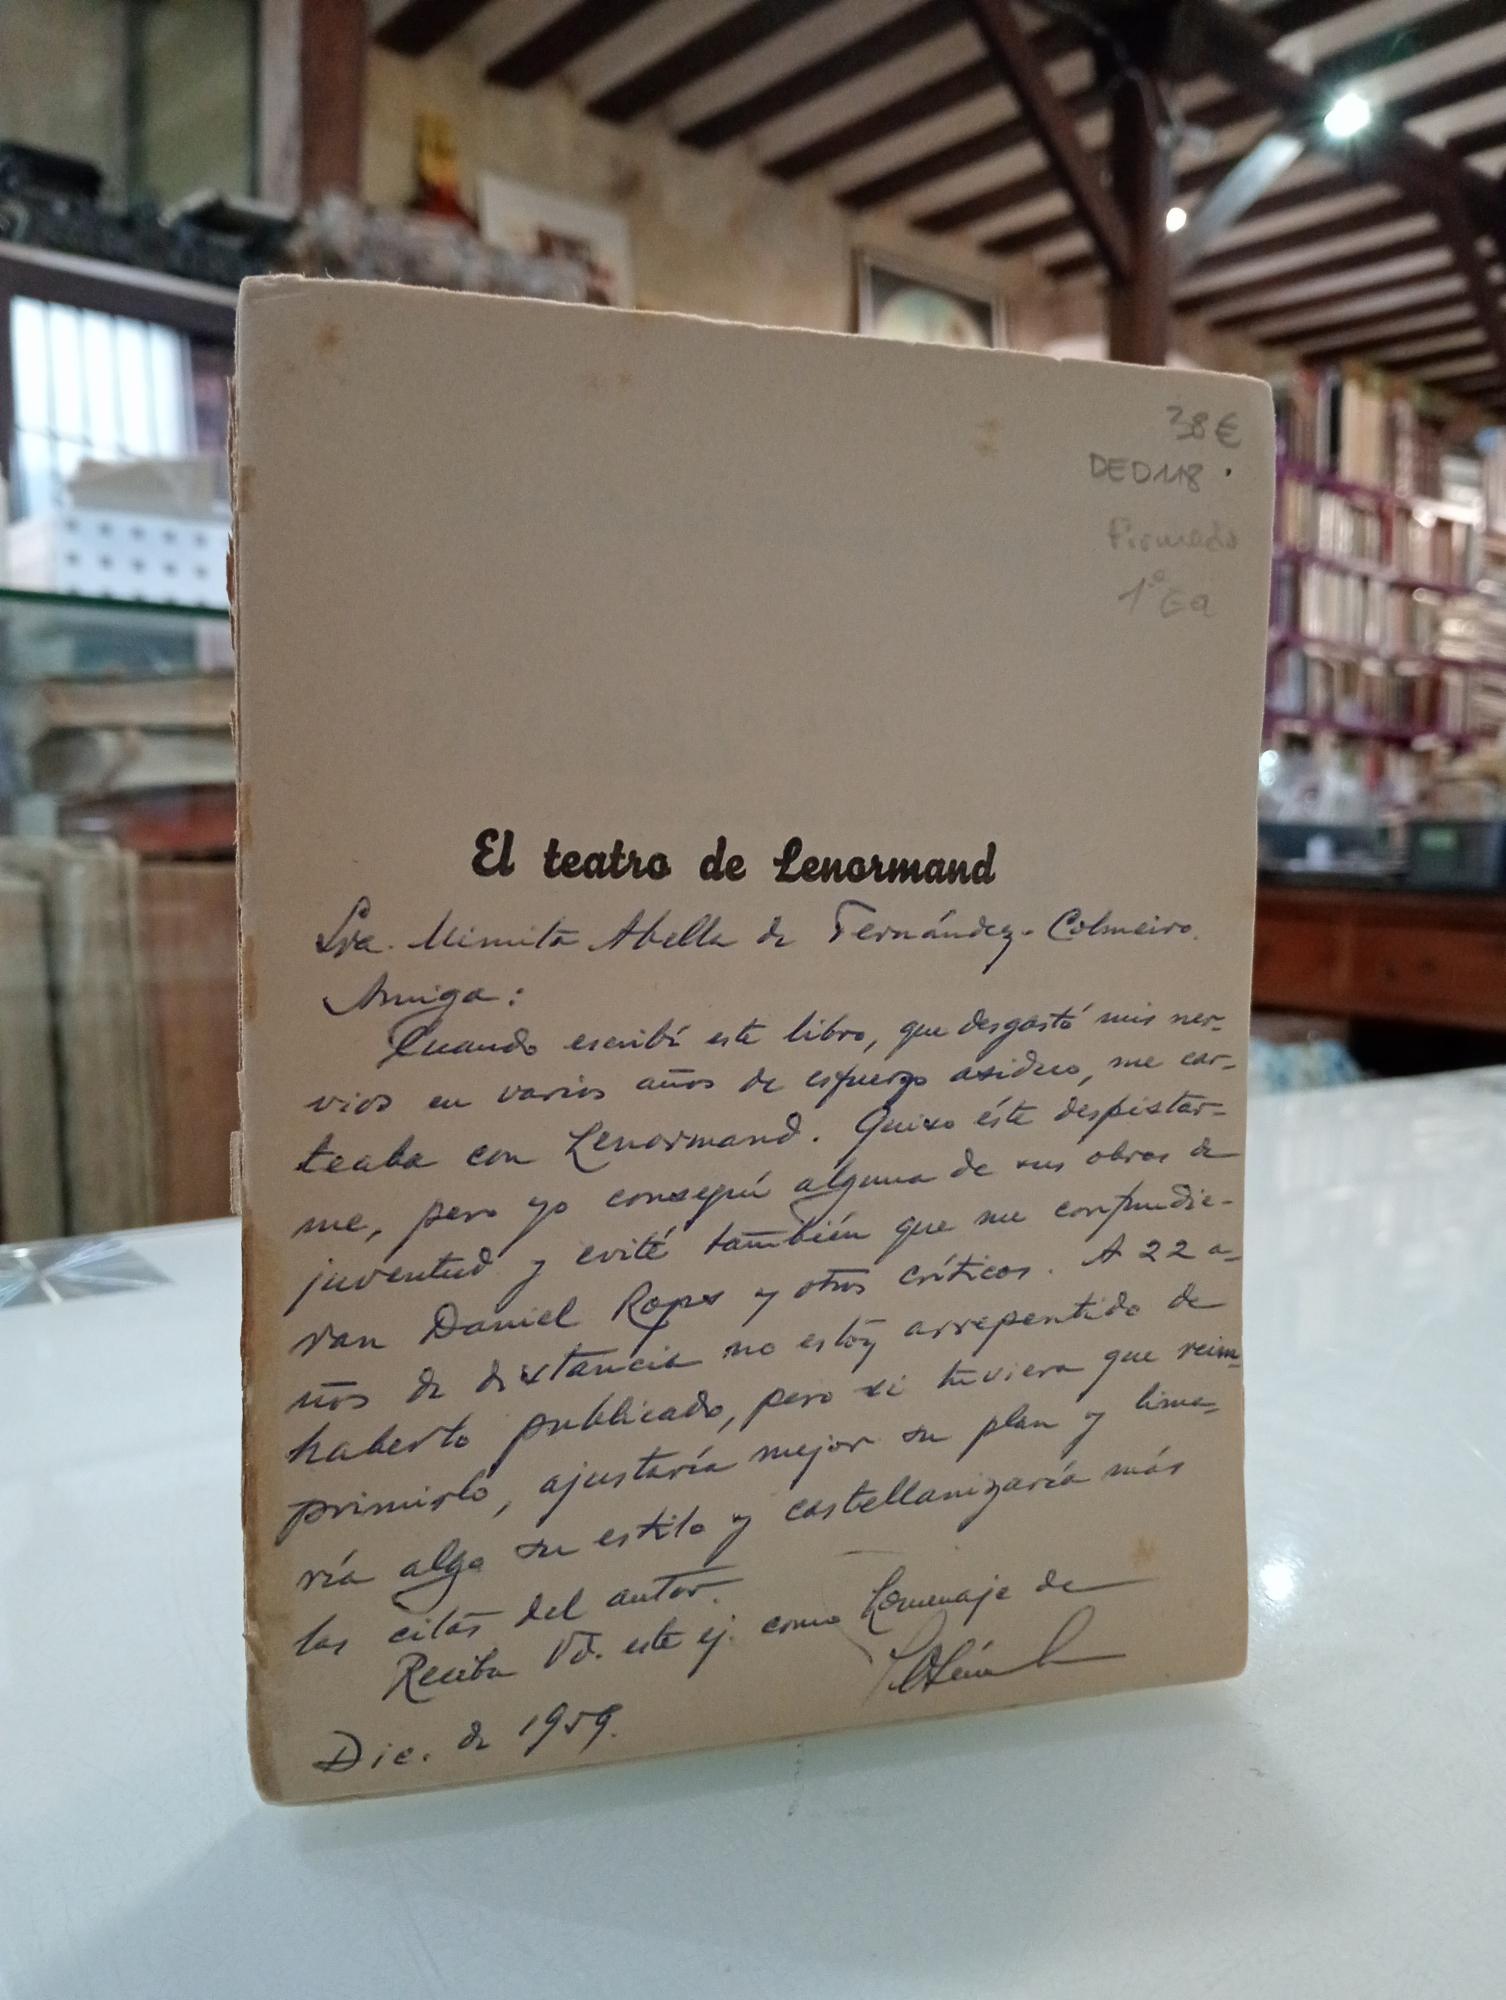 38€
DED118.
Firmado
1ª Ed
El teatro de Lenormand
Sra. Mimita Abella de Fernández-Colmeiro.
Amiga:
Cuando escribí este libro, que desgastó mis ner-
vios en varios años de esfuerzo asiduo, me car-
teaba con Lenormand. Quiso éste despistar-
me, pero yo conseguí alguna de sus obras de
juventud y evité también que me confundie-
ran Daniel Rops y otros críticos. A 22 a-
ños de distancia no estoy arrepentido de
haberlo publicado, pero si tuviera que reim-
primirlo, ajustaría mejor su plan y lima-
ría algo su estilo y castellanizaría más
las citas del autor.
Reciba Vd. este ej. como homenaje de
Dic. de 1959.